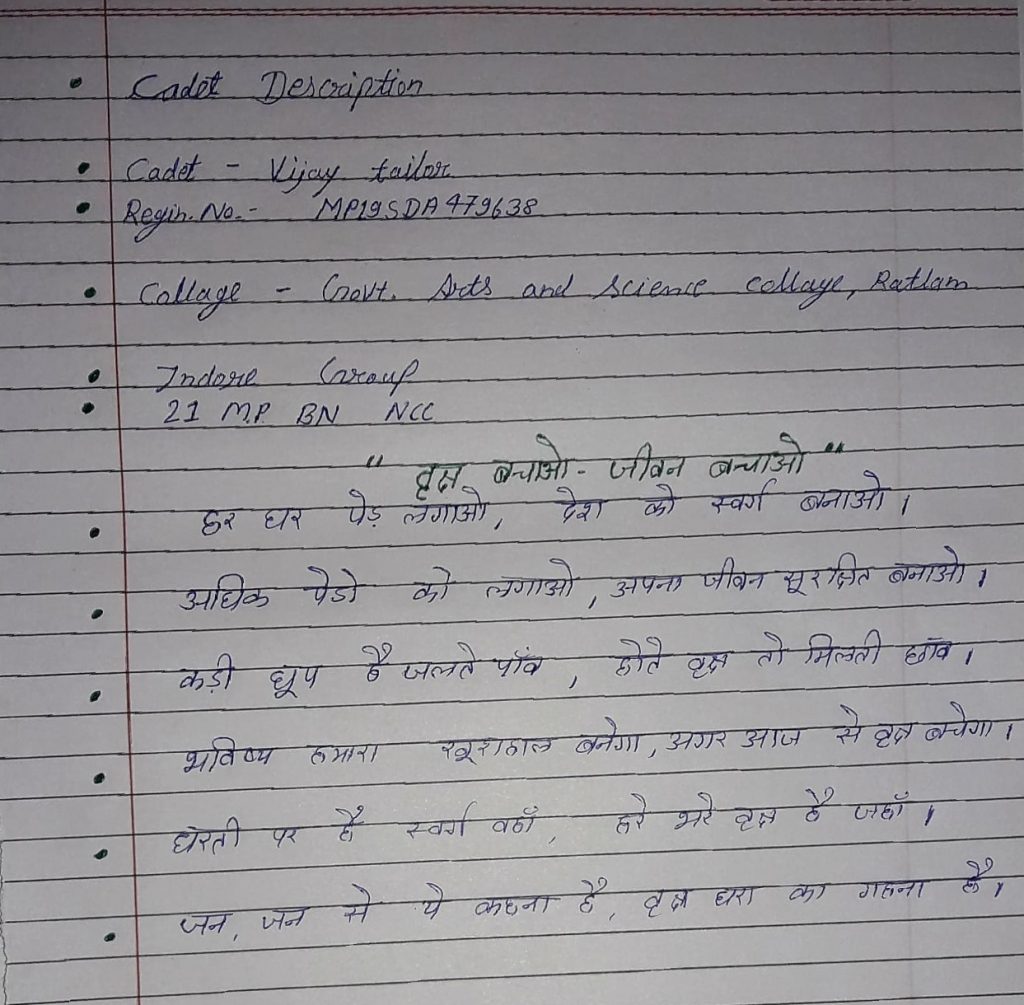 Cadet Description
Cadet - Vijay tailor
Regin. No. - MP19SDA479638
Collage - Govt. Arts and Science collage, Ratlam
Indore Group
21 M.P. BN NCC
" वृक्ष बचाओ - जीवन बचाओ "
हर घर पेड़ लगाओ, देश को स्वर्ग बनाओ।
अधिक पेडो को लगाओ, अपना जीवन सूरक्षित बनाओ।
कड़ी धूप है जलते पाँव, होते वृक्ष तो मिलती छाँव।
भविष्य हमारा खूशहाल बनेगा, अगर आज से वृक्ष बचेगा।
धरती पर है स्वर्ग वहाँ, हरे भरे वृक्ष है जहाँ।
जन, जन से ये कहना है, वृक्ष धरा का गहना है।